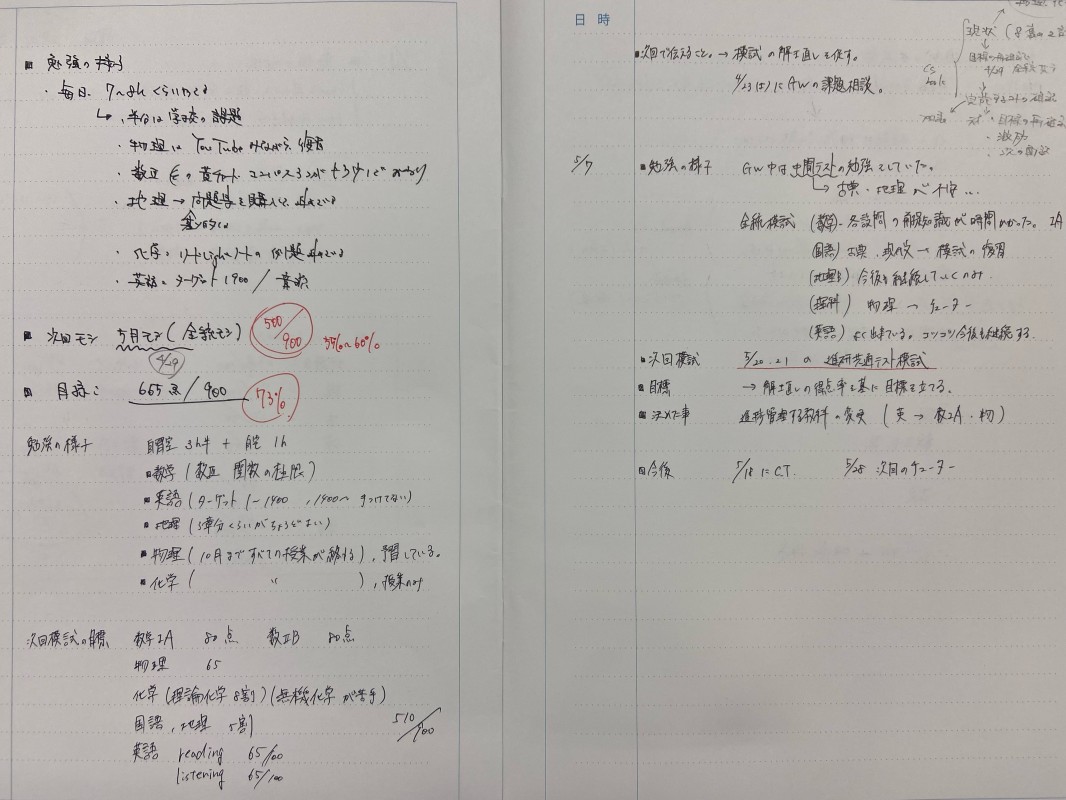 ■ 勉強の様子
・毎日 7~8h くらいやる
↳ ・半分は学校の課題
・物理は YouTube みながら 復習
・数Ⅲ 黄チャート
・地理 → 問題集を購入して 進めている
・化学 リードLightノートの 例題 進めている
・英語 ターゲット 1900 /
■ 次回モシ 5月モシ (全統モシ) 500/900 55%~60%
4/29
■ 目標: 655点/900 73%
勉強の様子 自習室 3h半 + 自宅 1h
■ 数学 (数Ⅲ 関数の極限)
■ 英語 (ターゲット 1-1400 , 1400~ 手つけてない)
■ 地理 (3章分くらいがちょうどよい)
■ 物理 (10月まで すべての授業が終わる) , 予習している。
■ 化学 ( 〃 ) , 授業のみ
次回模試の目標 数学ⅠA 80点 数ⅡB 80点
物理 65
化学 (理論化学 8割) (無機化学 が苦手)
国語 , 地理 5割
英語 reading 65/100
listening 65/100
510/900
日 時
■ 次回で伝えること。→ 模試の解き直しを促す。
4/23(土)にGWの課題相談。
現状
目標の再確認
4/29 全統模試
・目標の再確認
5/7
■ 勉強の様子 GW中は中間テストの勉強をしていた。
↳ 古典・地理が不安...
全統模試 (数学)・各設問の前提知識が時間かかった。ⅠA
(国語) 古典、現代文 → 模試の復習
(地理B) 今後も継続していくのみ
(理科) 物理 → チューター
(英語) よく出来ている。コツコツ今後も継続する
■ 次回模試 5/20.21 の 進研共通テスト模試
■ 目標 → 解き直しの得点率を基に目標を立てる。
■ 決めた事 進捗管理する教科の変更 (英 → 数ⅡA・物)
■ 今後 5/18 に C.T. 5/28 次回のチューター